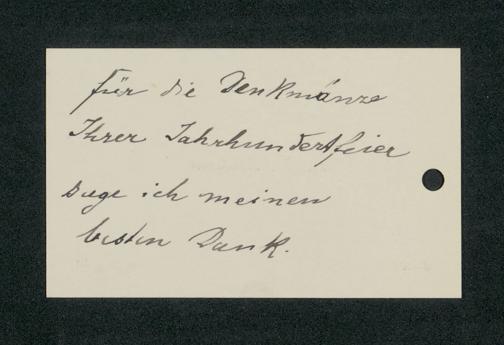 Für die Denkmünze
Ihrer Jahrhundertfeier
sage ich meinen
besten Dank.